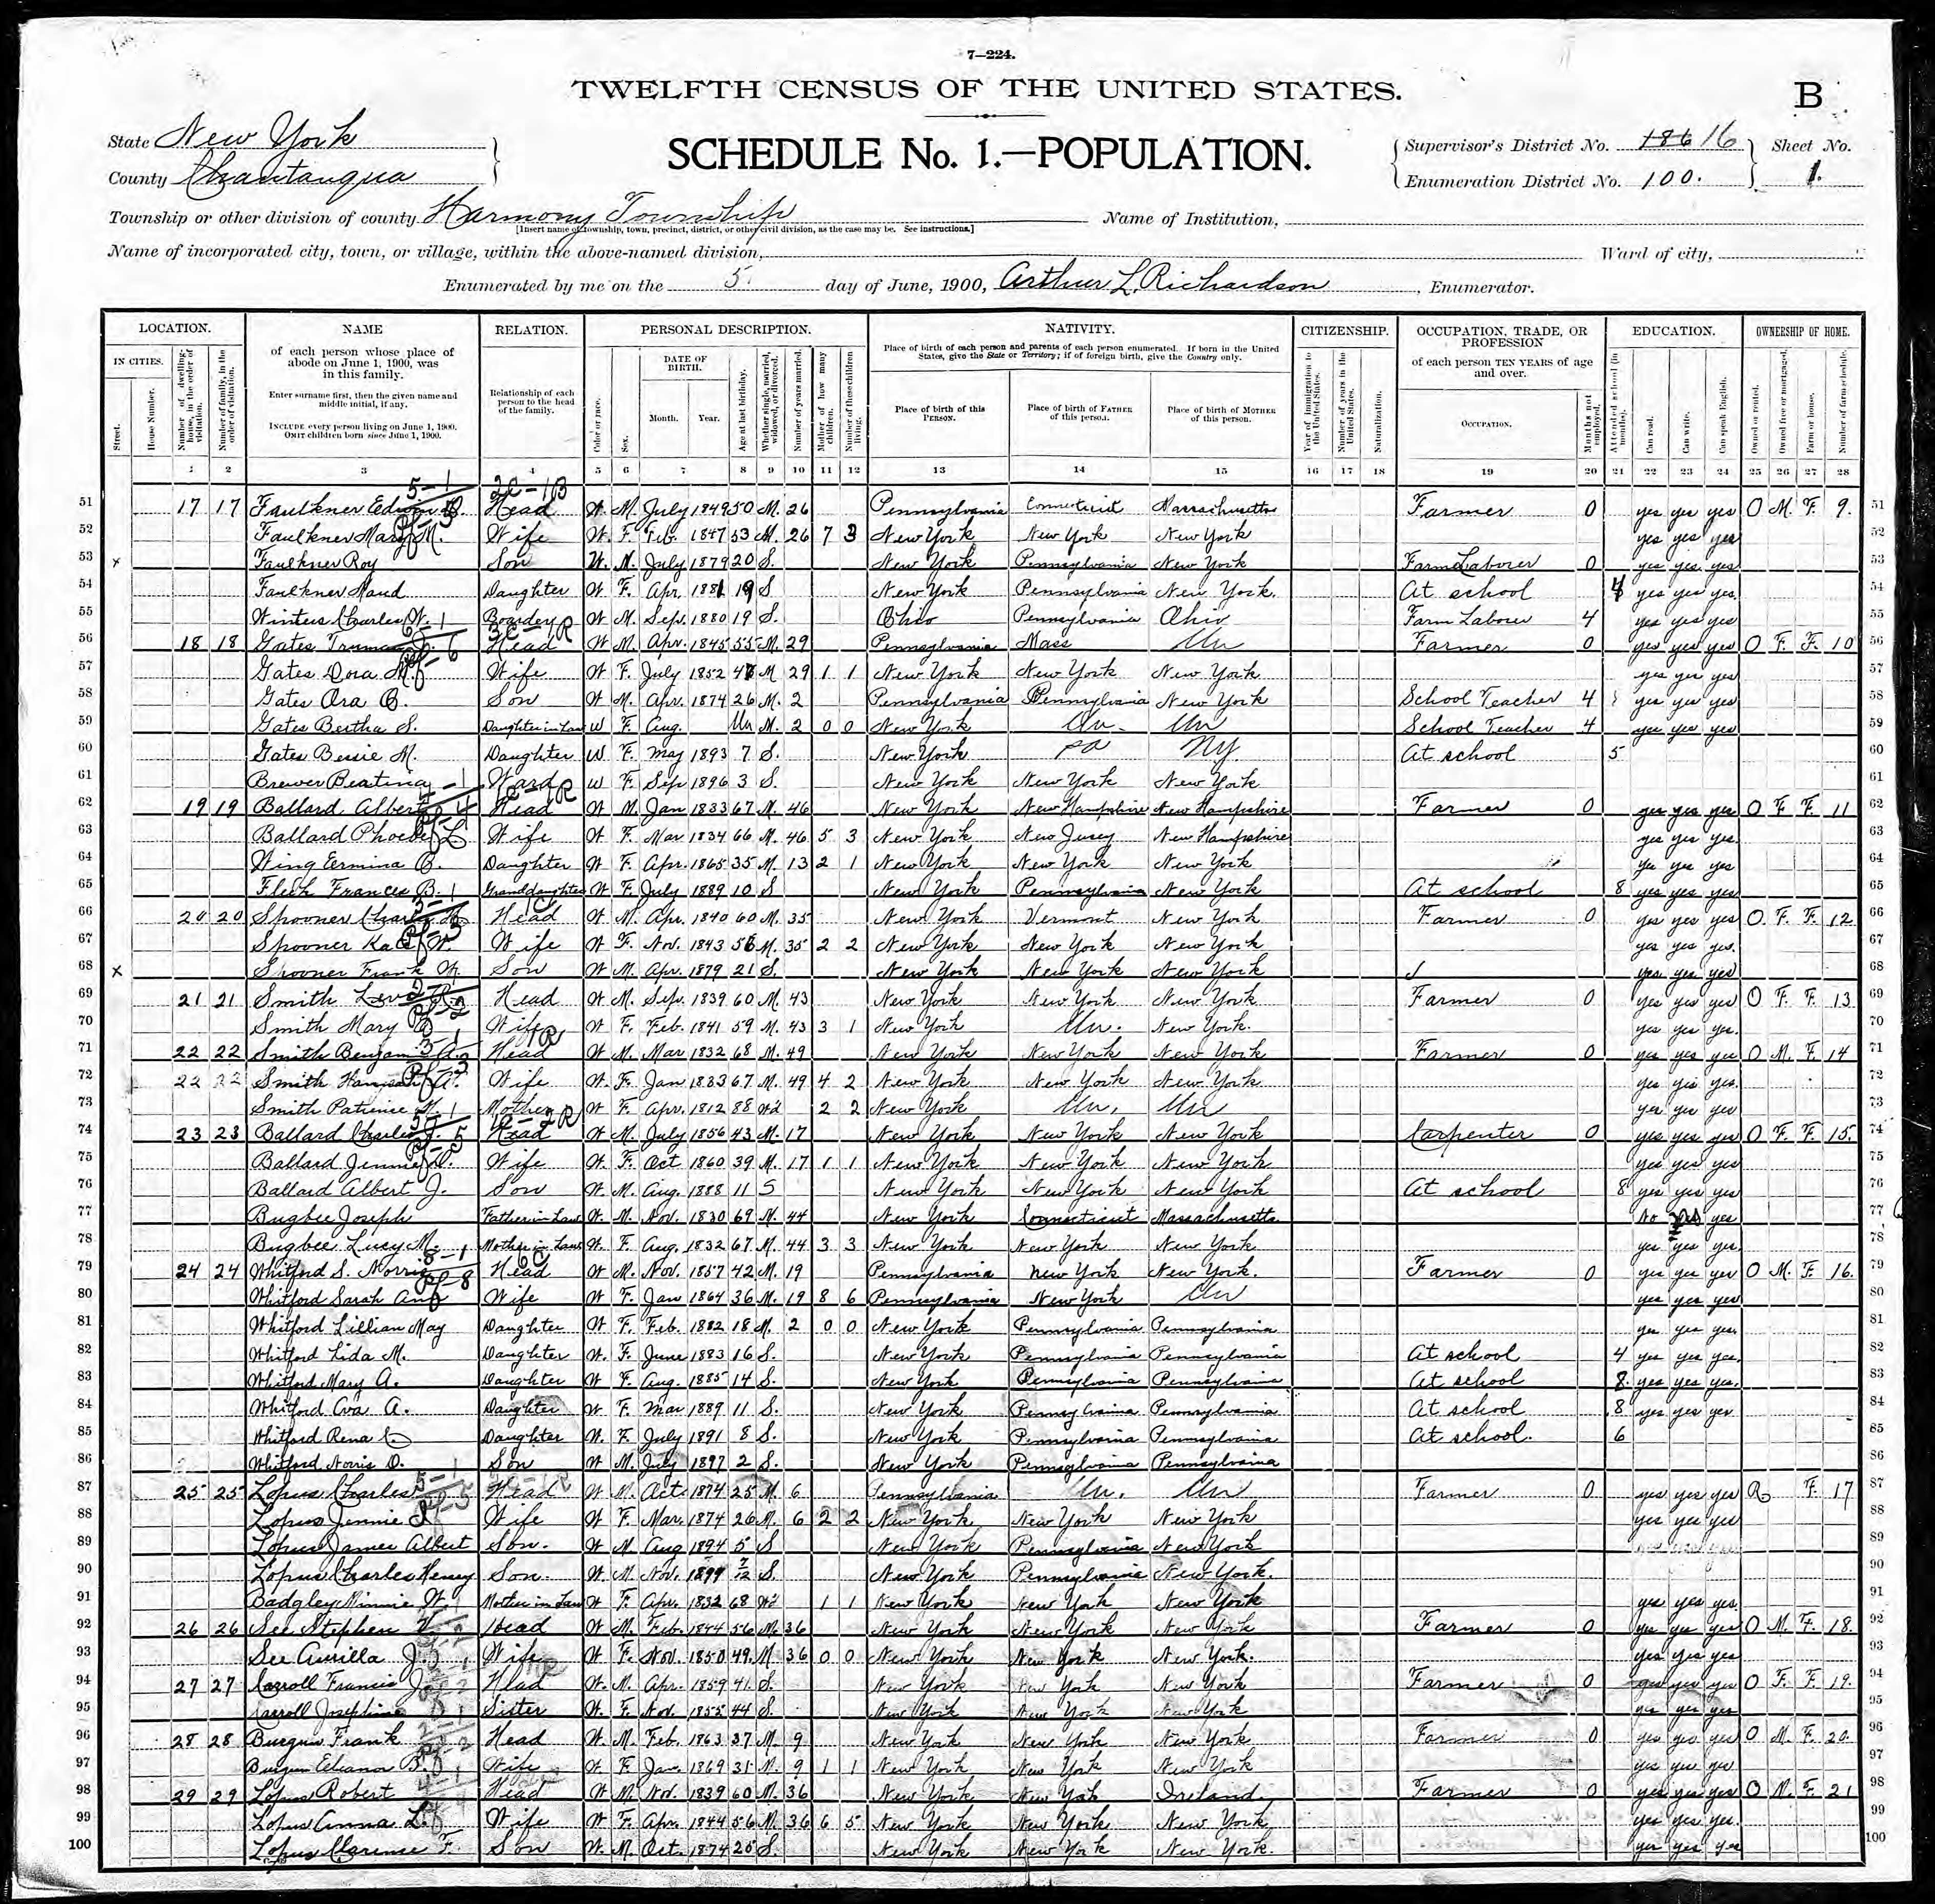 7—224.
TWELFTH CENSUS OF THE UNITED STATES.
B
State New York
SCHEDULE No. 1.—POPULATION.
Supervisor's District No. 186 16 Sheet No.
County Chautauqua
Enumeration District No. 100. 1.
Township or other division of county Harmony Township Name of Institution,
[Insert name of township, town, precinct, district, or other civil division, as the case may be. See instructions.]
Name of incorporated city, town, or village, within the above-named division, Ward of city,
Enumerated by me on the 5. day of June, 1900, Arthur L. Richardson, Enumerator.
LOCATION. NAME RELATION. PERSONAL DESCRIPTION. NATIVITY. CITIZENSHIP. OCCUPATION, TRADE, OR PROFESSION EDUCATION. OWNERSHIP OF HOME.
IN CITIES. Street. House Number. Number of dwelling-house, in the order of visitation. Number of family, in the order of visitation.
of each person whose place of abode on June 1, 1900, was in this family.
Enter surname first, then the given name and middle initial, if any.
INCLUDE every person living on June 1, 1900. OMIT children born since June 1, 1900.
Relationship of each person to the head of the family.
Color or race. Sex. DATE OF BIRTH. Month. Year. Age at last birthday. Whether single, married, widowed, or divorced. Number of years married. Mother of how many children. Number of these children living.
Place of birth of each person and parents of each person enumerated. If born in the United States, give the State or Territory; if of foreign birth, give the Country only.
Place of birth of this PERSON. Place of birth of FATHER of this person. Place of birth of MOTHER of this person.
Year of immigration to the United States. Number of years in the United States. Naturalization.
of each person TEN YEARS of age and over.
OCCUPATION. Months not employed.
Attended school (in months). Can read. Can write. Can speak English.
Owned or rented. Owned free or mortgaged. Farm or house. Number of farm schedule.
1 2 3 4 5 6 7 8 9 10 11 12 13 14 15 16 17 18 19 20 21 22 23 24 25 26 27 28
51 17 17 Faulkner Edwin Head W M. July 1849 50 M. 26 Pennsylvania Connecticut Massachusetts Farmer 0 yes yes yes O M. F. 9. 51
52 Faulkner Mary M. Wife W. F. Feb. 1847 53 M. 26 7 3 New York New York New York yes yes yes 52
53 x Faulkner Roy Son W. M. July 1879 20 S. New York Pennsylvania New York Farm Laborer 0 yes yes yes 53
54 Faulkner Maud Daughter W F. Apr. 1881 19 S New York Pennsylvania New York. At school 4 yes yes yes. 54
55 Winters Charles W. Boarder W M. Sep. 1880 19 S. Ohio Pennsylvania Ohio Farm Laborer 4 yes yes yes 55
56 18 18 Gates Truman Head W M. Apr. 1845 55 M. 29 Pennsylvania Mass Un Farmer 0 yes yes yes O F. F. 10 56
57 Gates Dora M. Wife W F. July 1852 47 M 29 1 1 New York New York New York yes yes yes 57
58 Gates Ora B. Son W M. Apr. 1874 26 M. 2 Pennsylvania Pennsylvania New York School Teacher 4 yes yes yes 58
59 Gates Bertha S. Daughter in Law W F. Aug. Un M. 2 0 0 New York Un. Un School Teacher 4 yes yes yes 59
60 Gates Bessie M. Daughter W F. May 1893 7 S. New York Pa Ny. At school 5 60
61 Brewer Beatrina Ward W F. Sep 1896 3 S. New York New York New York 61
62 19 19 Ballard Albert Head W M. Jan 1833 67 M. 46 New York New Hampshire New Hampshire Farmer 0 yes yes yes O F F. 11 62
63 Ballard Phoebe L Wife W F. Mar 1834 66 M. 46 5 3 New York New Jersey New Hampshire yes yes yes. 63
64 Wing Ermina B. Daughter W F. Apr. 1865 35 M. 13 2 1 New York New York New York yes yes yes 64
65 Flesh Frances B. Granddaughter W F. July 1889 10 S New York Pennsylvania New York At school 8 yes yes yes 65
66 20 20 Spooner Charles Head W M. Apr. 1840 60 M. 35 New York Vermont New York Farmer 0 yes yes yes O F. F. 12 66
67 Spooner Kate W. Wife W F. Nov. 1843 56 M. 35 2 2 New York New York New York yes yes yes. 67
68 x Spooner Frank W. Son W M. Apr. 1879 21 S. New York New York New York yes yes yes 68
69 21 21 Smith Head W M. Sep. 1839 60 M. 43 New York New York New York Farmer 0 yes yes yes O F. F. 13 69
70 Smith Mary Wife W F. Feb. 1841 59 M. 43 3 1 New York Un. New York. yes yes yes. 70
71 22 22 Smith Benjamin Head W M. Mar 1832 68 M. 49 New York New York New York Farmer 0 yes yes yes O M. F. 14 71
72 22 22 Smith A. Wife W. F. Jan 1833 67 M. 49 4 2 New York New York New York yes yes yes. 72
73 Smith Patience M. Mother W F. Apr. 1812 88 Wd 2 2 New York Un. Un yes yes yes 73
74 23 23 Ballard Charles J. Head W M. July 1856 43 M. 17 New York New York New York Carpenter 0 yes yes yes O F. F. 15. 74
75 Ballard Jennie D. Wife W. F. Oct 1860 39 M. 17 1 1 New York New York New York yes yes yes 75
76 Ballard Albert J. Son W. M. Aug. 1888 11 S New York New York New York At school 8 yes yes yes 76
77 Bugbee Joseph Father in Law W. M. Nov. 1830 69 M. 44 New York Connecticut Massachusetts No yes 77
78 Bugbee Lucy M. Mother in Law W. F. Aug. 1832 67 M. 44 3 3 New York New York New York yes yes yes. 78
79 24 24 Whitford S. Norris Head W M. Nov. 1857 42 M. 19 Pennsylvania New York New York. Farmer 0 yes yes yes O M. F. 16. 79
80 Whitford Sarah Ann Wife W F. Jan 1864 36 M. 19 8 6 Pennsylvania New York Un yes yes yes 80
81 Whitford Lillian May Daughter W F. Feb. 1882 18 M. 2 0 0 New York Pennsylvania Pennsylvania yes yes yes. 81
82 Whitford Lida M. Daughter W. F. June 1883 16 S. New York Pennsylvania Pennsylvania At school 4 yes yes yes. 82
83 Whitford Mary A. Daughter W F. Aug. 1885 14 S. New York Pennsylvania Pennsylvania At school 8 yes yes yes. 83
84 Whitford Eva A. Daughter W F. Mar 1889 11 S. New York Pennsylvania Pennsylvania At school 8 yes yes yes 84
85 Whitford Rena Daughter W. F. July 1891 8 S. New York Pennsylvania Pennsylvania At school. 6 85
86 Whitford Norris O. Son W M. July 1897 2 S. New York Pennsylvania Pennsylvania 86
87 25 25 Lopus Charles Head W M. Oct 1874 25 M. 6 Pennsylvania Un. Un Farmer 0 yes yes yes R F. 17 87
88 Lopus Jennie Wife W F. Mar. 1874 26 M. 6 2 2 New York New York New York yes yes yes 88
89 Lopus James Albert Son. W M Aug 1894 5 S New York Pennsylvania New York 89
90 Lopus Charles Henry Son. W. M. Nov. 1899 7/12 S. New York Pennsylvania New York. 90
91 Badgley Minnie W. Mother in Law W F. Apr. 1832 68 Wd 1 1 New York New York New York yes yes yes. 91
92 26 26 See Stephen Head W M. Feb. 1844 56 M. 36 New York New York New York Farmer 0 yes yes yes O M. F. 18. 92
93 See Aurilla J. Wife W F. Nov. 1850 49. M 36 0 0 New York New York New York. yes yes yes 93
94 27 27 Carroll Francis Head W. M. Apr. 1859 41. S. New York New York New York Farmer 0 yes yes yes O F. F. 19. 94
95 Carroll Josephine Sister W. F. Nov. 1855 44 S. New York New York New York yes yes yes 95
96 28 28 Burgun Frank Head W. M. Feb. 1863 37 M. 9 New York New York New York Farmer 0 yes yes yes O M. F. 20. 96
97 Burgun Eleanor B. Wife W. F. Jan. 1869 31 M. 9 1 1 New York New York New York yes yes yes 97
98 29 29 Lopus Robert Head W M. Nov. 1839 60 M. 36 New York New York Ireland Farmer 0 yes yes yes O M. F. 21 98
99 Lopus Anna L. Wife W F. Apr. 1844 56 M. 36 6 5 New York New York New York yes yes yes. 99
100 Lopus Clarence F. Son W. M. Oct. 1874 25 S. New York New York New York. yes yes yes 100